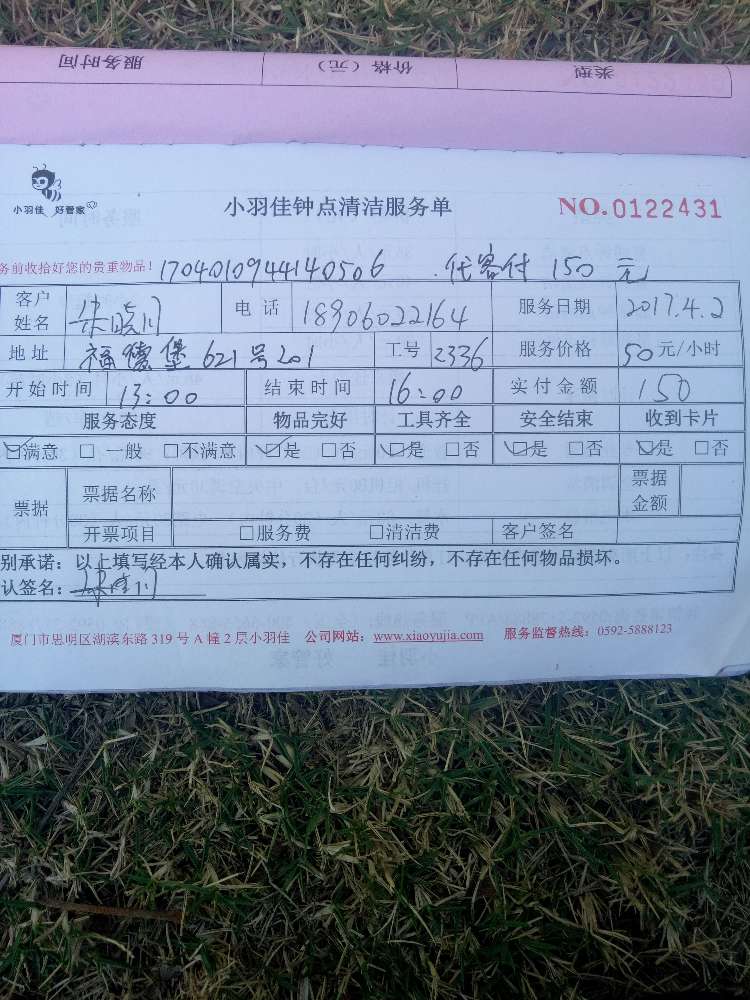 类型 价格（元） 服务时间
小羽佳 好管家
小羽佳钟点清洁服务单
NO.0122431
务前收拾好您的贵重物品！ 1704010944140506 代客付 150 元
客户姓名 电话 18906022164 服务日期 2017.4.2
地址 福德堡 621号201 工号 2336 服务价格 50 元/小时
开始时间 13:00 结束时间 16:00 实付金额 150
服务态度 物品完好 工具齐全 安全结束 收到卡片
☑满意 □一般 □不满意 ☑是 □否 ☑是 □否 ☑是 □否 ☑是 □否
票据 票据名称 票据金额
开票项目 □服务费 □清洁费 客户签名
别承诺：以上填写经本人确认属实，不存在任何纠纷，不存在任何物品损坏。
认签名：
厦门市思明区湖滨东路 319 号 A 幢 2 层小羽佳 公司网站：www.xiaoyujia.com 服务监督热线：0592-5888123